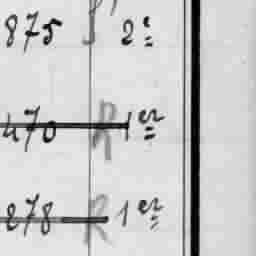 875 2e
470 R 1er
278 R 1er